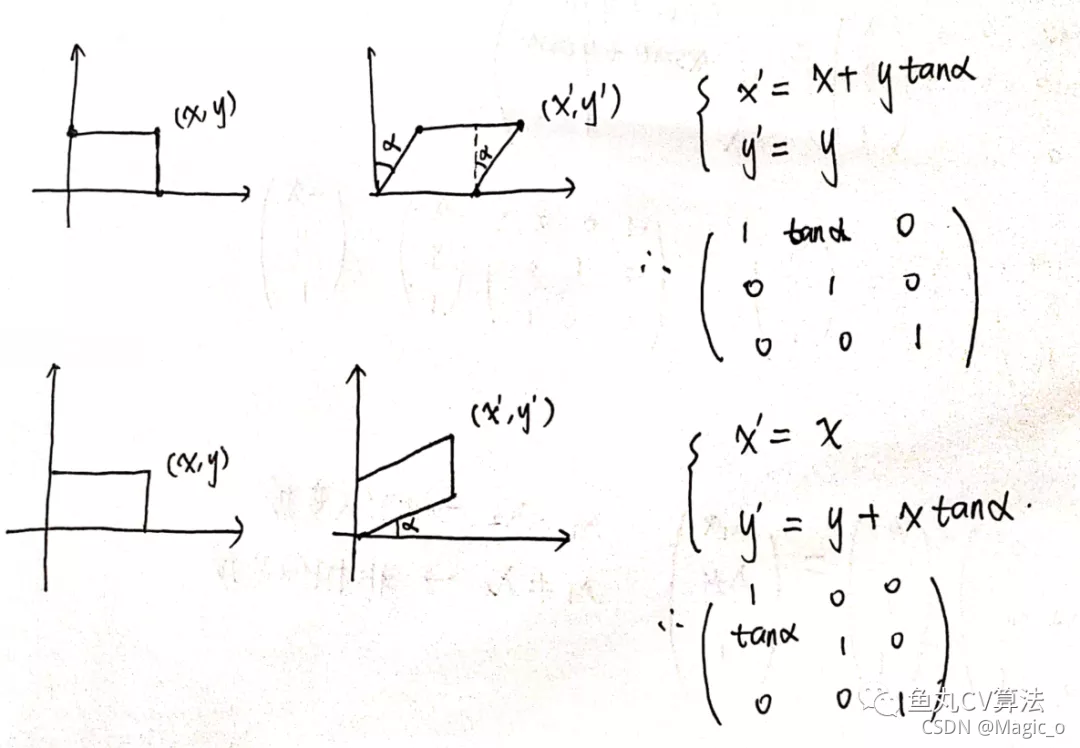 (x,y)
α
α
(x',y')
x' = x + y tanα
y' = y
∴
1 tanα 0
0 1 0
0 0 1
(x,y)
(x',y')
α
x' = x
y' = y + x tanα.
∴
1 0 0
tanα 1 0
0 0 1
鱼丸CV算法
CSDN @Magic_o